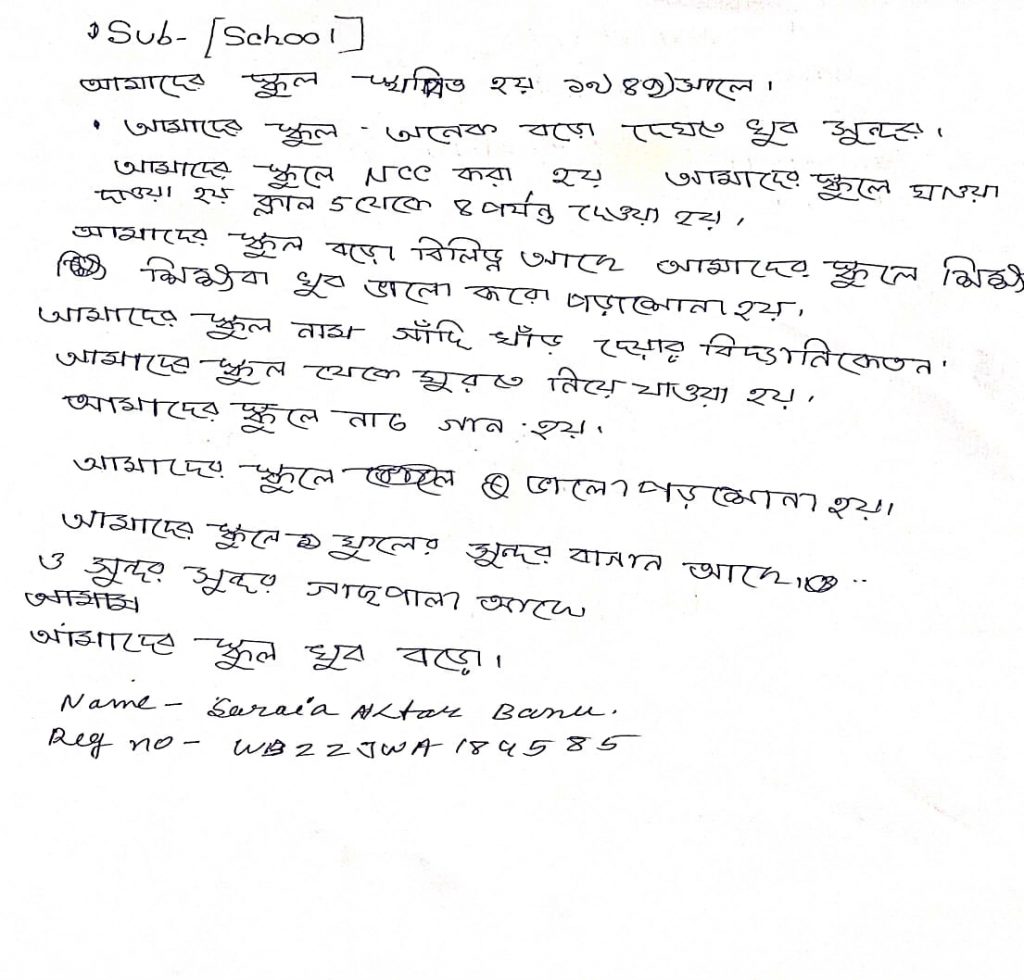 Sub- [School]
আমাদের স্কুল স্থাপিত হয় ১৯৪৭ সালে।
• আমাদের স্কুল - অনেক বড়ো দেখতে খুব সুন্দর।
আমাদের স্কুলে NCC করা হয় আমাদের স্কুলে খাওয়া
দাওয়া হয় ক্লাস 5 থেকে ৪ পর্যন্ত দেওয়া হয়,
আমাদের স্কুল বড়ো বিল্ডিং আছে আমাদের স্কুলে শিক্ষ
শিক্ষকরা খুব ভালো করে পড়াশোনা হয়,
আমাদের স্কুল নাম দেয়ার বিদ্যানিকেতন।
আমাদের স্কুল থেকে ঘুরতে নিয়ে যাওয়া হয়,
আমাদের স্কুলে নাচ গান হয়।
আমাদের স্কুলে ভালো পড়াশোনা হয়।
আমাদের স্কুলে ফুলের সুন্দর বাগান আছে,
ও সুন্দর সুন্দর গাছপালা আছে
আমাদের স্কুল খুব বড়ো।
Name - Saraia Aktar Banu.
Reg no - WB22JWA184585